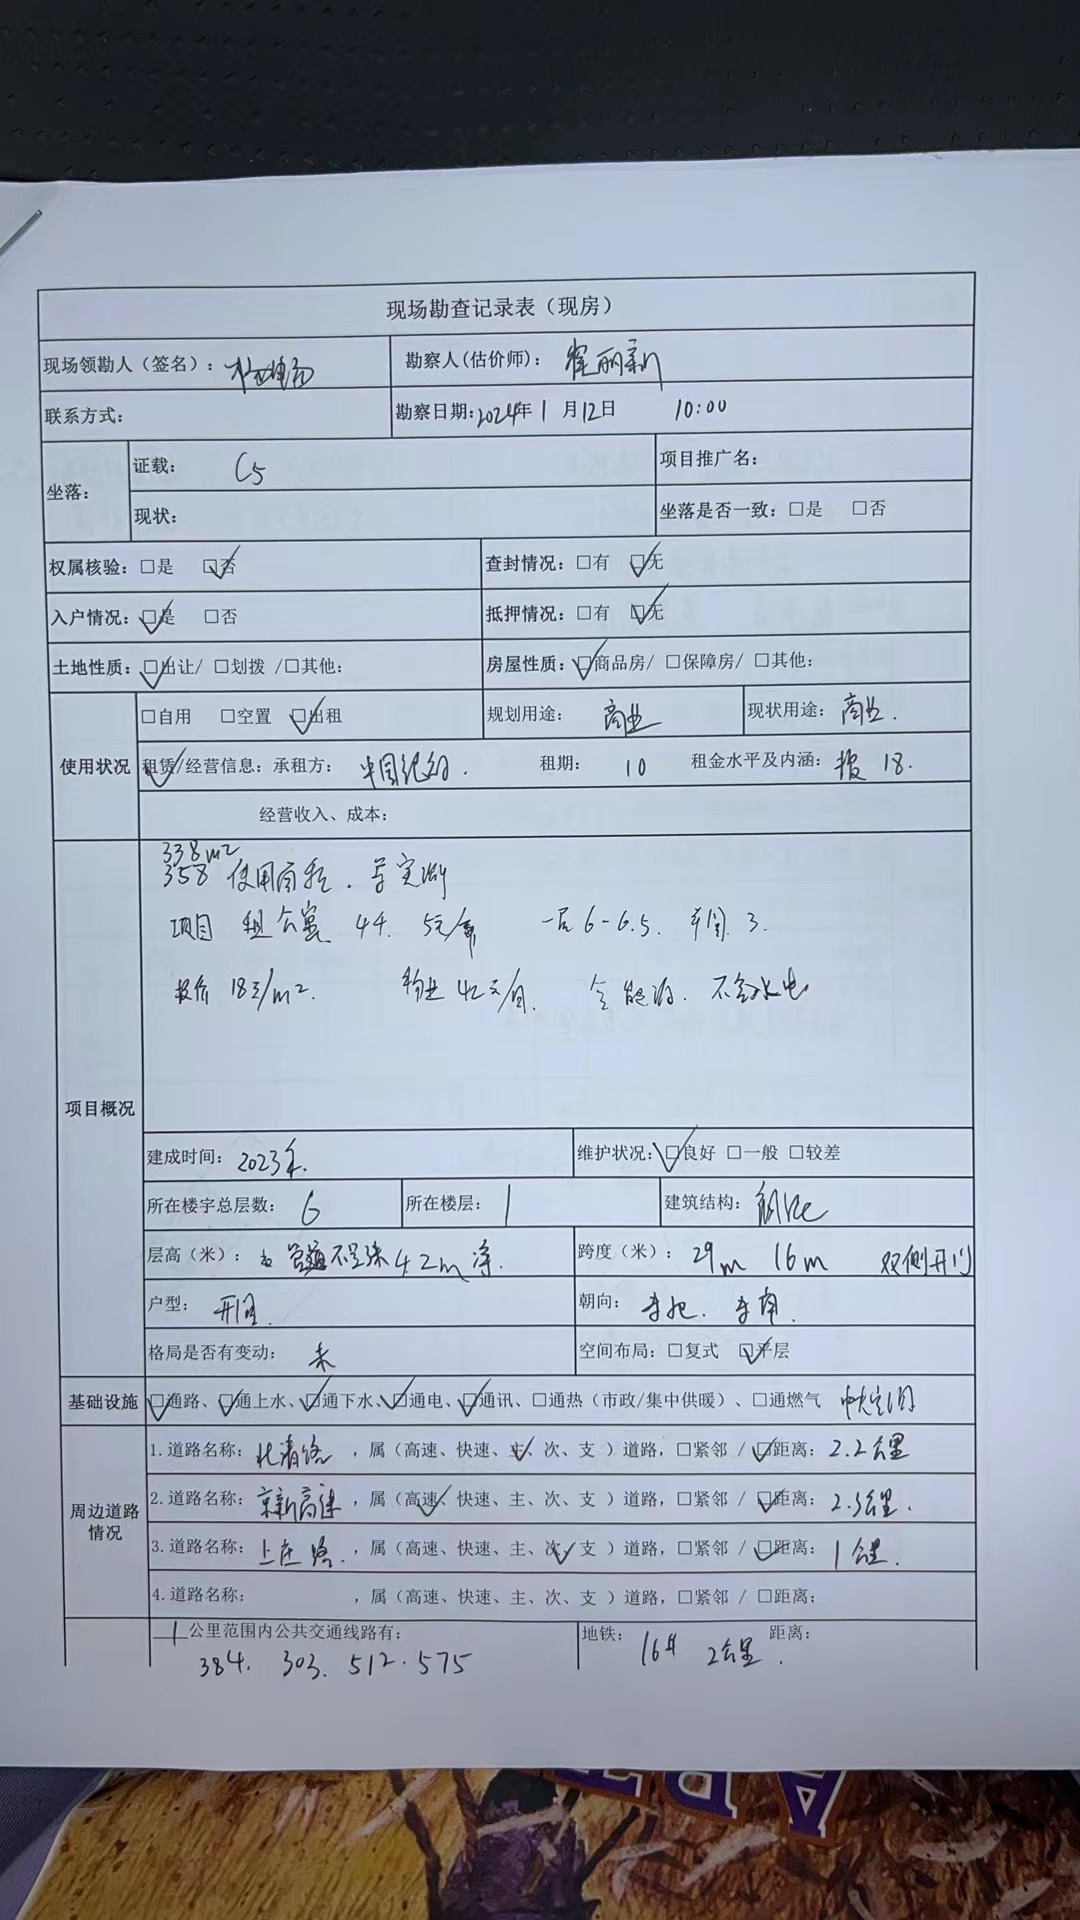 现场勘查记录表（现房）
现场领勘人（签名）：
勘察人(估价师)： 崔丽新
联系方式：
勘察日期:2024年1月12日 10:00
坐落：
证载： C5
项目推广名：
现状：
坐落是否一致：□是 □否
权属核验：□是 ☑否
查封情况：□有 ☑无
入户情况：☑是 □否
抵押情况：□有 ☑无
土地性质：☑出让/ □划拨 /□其他:
房屋性质：☑商品房/ □保障房/ □其他:
使用状况
□自用 □空置 ☑出租
规划用途： 商业
现状用途： 商业.
租赁/经营信息：承租方： 中国 租期： 10 租金水平及内涵： 报 18.
经营收入、成本：
项目概况
338m²
358 使用面积. 实测
项目 租公寓 44. 5元/ 一居 6-6.5. 开间. 3.
报价 18元/m². 物业 42元/月. 含能源. 不含水电
建成时间： 2023年.
维护状况：☑良好 □一般 □较差
所在楼宇总层数： 6
所在楼层： 1
建筑结构： 钢混
层高（米）： 4.2m 净.
跨度（米）： 29m 16m 双侧开门
户型： 开间.
朝向： 东北. 东南.
格局是否有变动： 未
空间布局：□复式 ☑平层
基础设施
☑通路、☑通上水、☑通下水、☑通电、☑通讯、□通热（市政/集中供暖）、□通燃气 中央空调
周边道路情况
1.道路名称： 北清路 ，属（高速、快速、主、次、支 ）道路，□紧邻 / ☑距离： 2.2公里
2.道路名称： 京新高速 ，属（高速、快速、主、次、支 ）道路，□紧邻 / ☑距离： 2.5公里.
3.道路名称： 上庄路. ，属（高速、快速、主、次、支 ）道路，□紧邻 / ☑距离： 1公里.
4.道路名称： ，属（高速、快速、主、次、支 ）道路，□紧邻 / □距离：
1 公里范围内公共交通线路有：
384. 303. 512. 575
地铁： 16# 2公里. 距离：